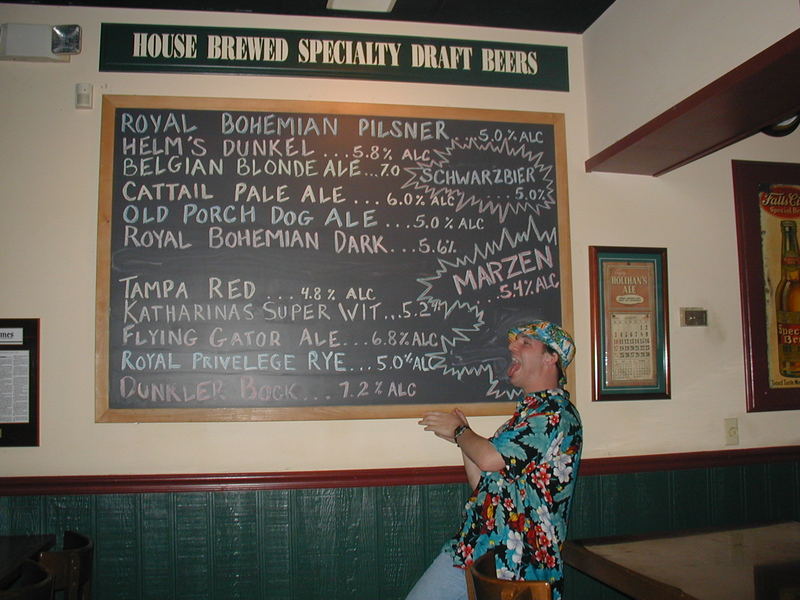 HOUSE BREWED SPECIALTY DRAFT BEERS
ROYAL BOHEMIAN PILSNER...5.0% ALC
HELM'S DUNKEL...5.8% ALC
BELGIAN BLONDE ALE...7.0
CATTAIL PALE ALE...6.0% ALC
OLD PORCH DOG ALE...5.0% ALC
ROYAL BOHEMIAN DARK...5.6%
SCHWARZBIER
...5.0%
MARZEN
...5.4% ALC
TAMPA RED...4.8% ALC
KATHARINAS SUPER WIT...5.2%
FLYING GATOR ALE...6.8% ALC
ROYAL PRIVELEGE RYE...5.0% ALC
DUNKLER BOCK...7.2% ALC
HOLIHAN'S
ALE
Falls Ci
Special Be